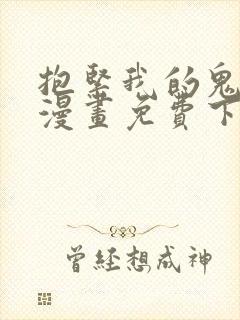 抱緊我的鬼
漫畫免費下
曾經想成神